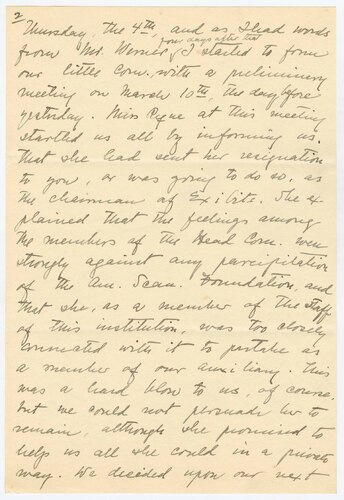 2
Thursday, the 4th, and as I had words
from Mr. Werner, four days after that I started to form
our little Com. with a preliminary
meeting on March 10th, the day before
yesterday. Miss at this meeting
startled us all by informing us.
that she had sent her resignation
to you, or was going to do so, as
the chairman of Exibits. She ex-
plained that the feelings among
the members of the Head Com. were
strongly against any parcipitation
of the Am. Scan. Foundation, and
that she, as a member of the staff
of this institution, was too closely
connected with it to partake as
a member of our auxiliary. This
was a hard blow to us, of course,
but we could not persuade her to
remain, although she promised to
help us all she could in a private
way. We decided upon our next